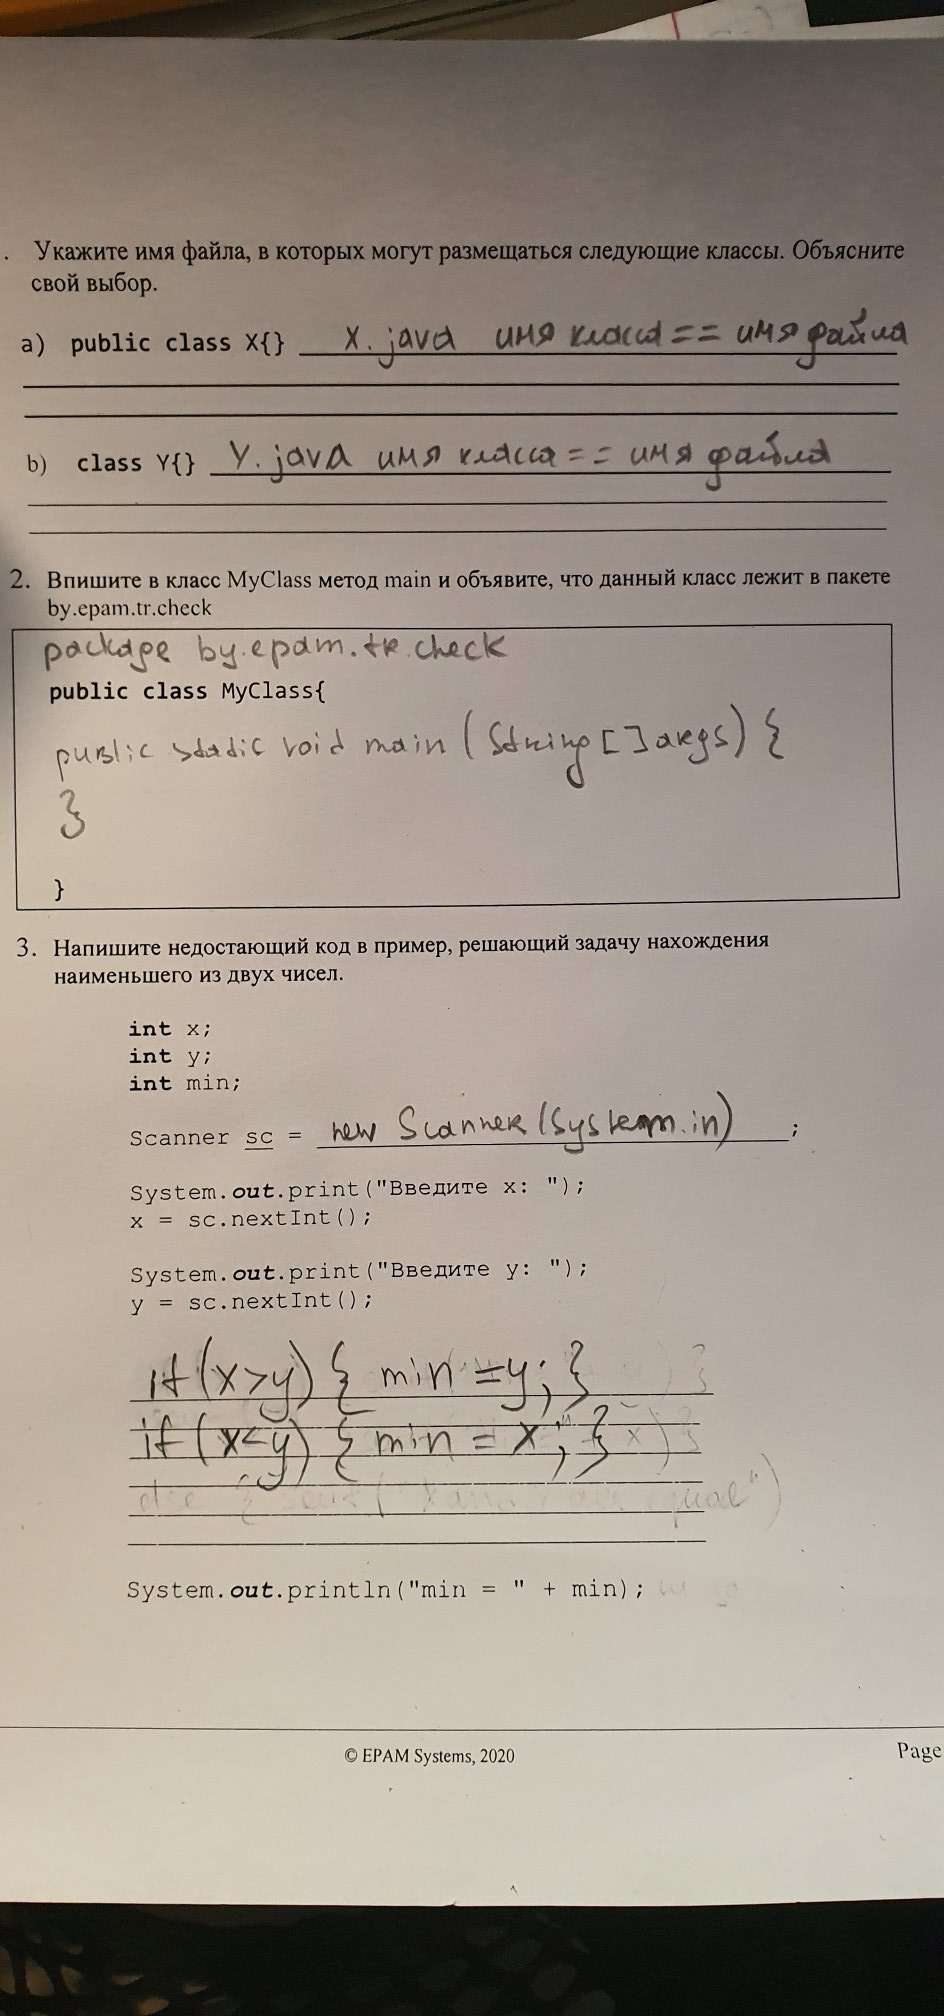 . Укажите имя файла, в которых могут размещаться следующие классы. Объясните
свой выбор.
a) public class X{} X.java имя класса == имя файла
b) class Y{} Y.java имя класса == имя файла
2. Впишите в класс MyClass метод main и объявите, что данный класс лежит в пакете
by.epam.tr.check
package by.epam.tr.check
public class MyClass{
public static void main (String [] args) {
}
}
3. Напишите недостающий код в пример, решающий задачу нахождения
наименьшего из двух чисел.
int x;
int y;
int min;
Scanner sc = new Scanner (System.in) ;
System.out.print("Введите x: ");
x = sc.nextInt();
System.out.print("Введите y: ");
y = sc.nextInt();
if (x>y) { min =y; }
if (x<y) { min = x; }
System.out.println("min = " + min);
© EPAM Systems, 2020
Page